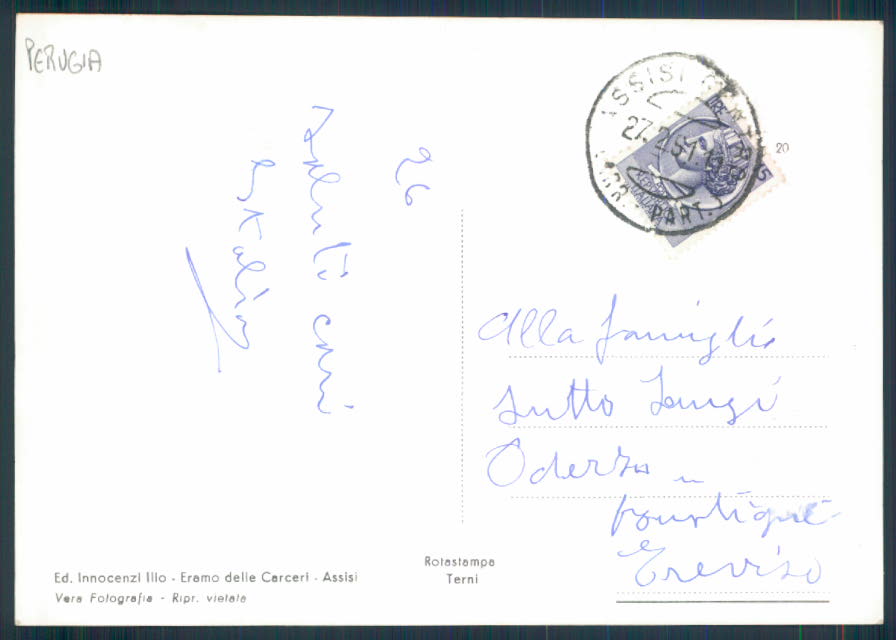 PERUGIA
26
Saluti cari
ASSISI
27.
PART.
20
Alla famiglia
Sutto Luigi
Oderzo
Treviso
Rotastampa
Terni
Ed. Innocenzi Illo - Eramo delle Carceri - Assisi
Vera Fotografia - Ripr. vietata